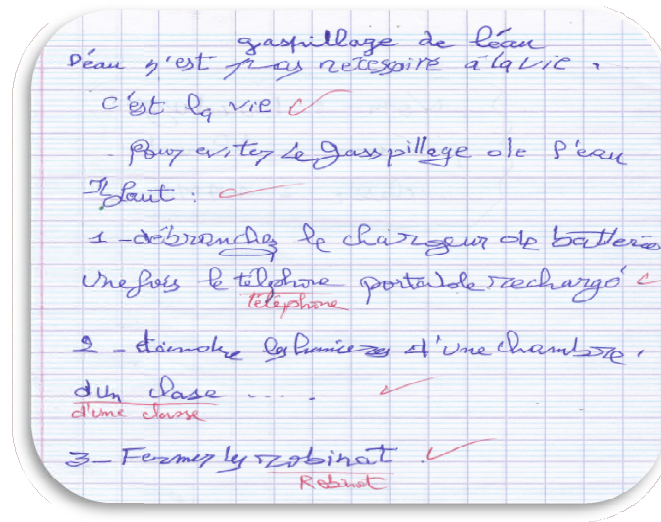 gaspillage de léau
Déau n'est pas nécessoire à la vie.
c'est la vie
pour eviter le gasspillege de l'eau
Il faut :
1 - débranchez le chargeur de batterie
une fois le téléphone portable rechargé
téléphone
2 - éteindre les lumieres d'une chambre,
dun clase .....
d'une classe
3 - Fermer les robinat.
Robinet